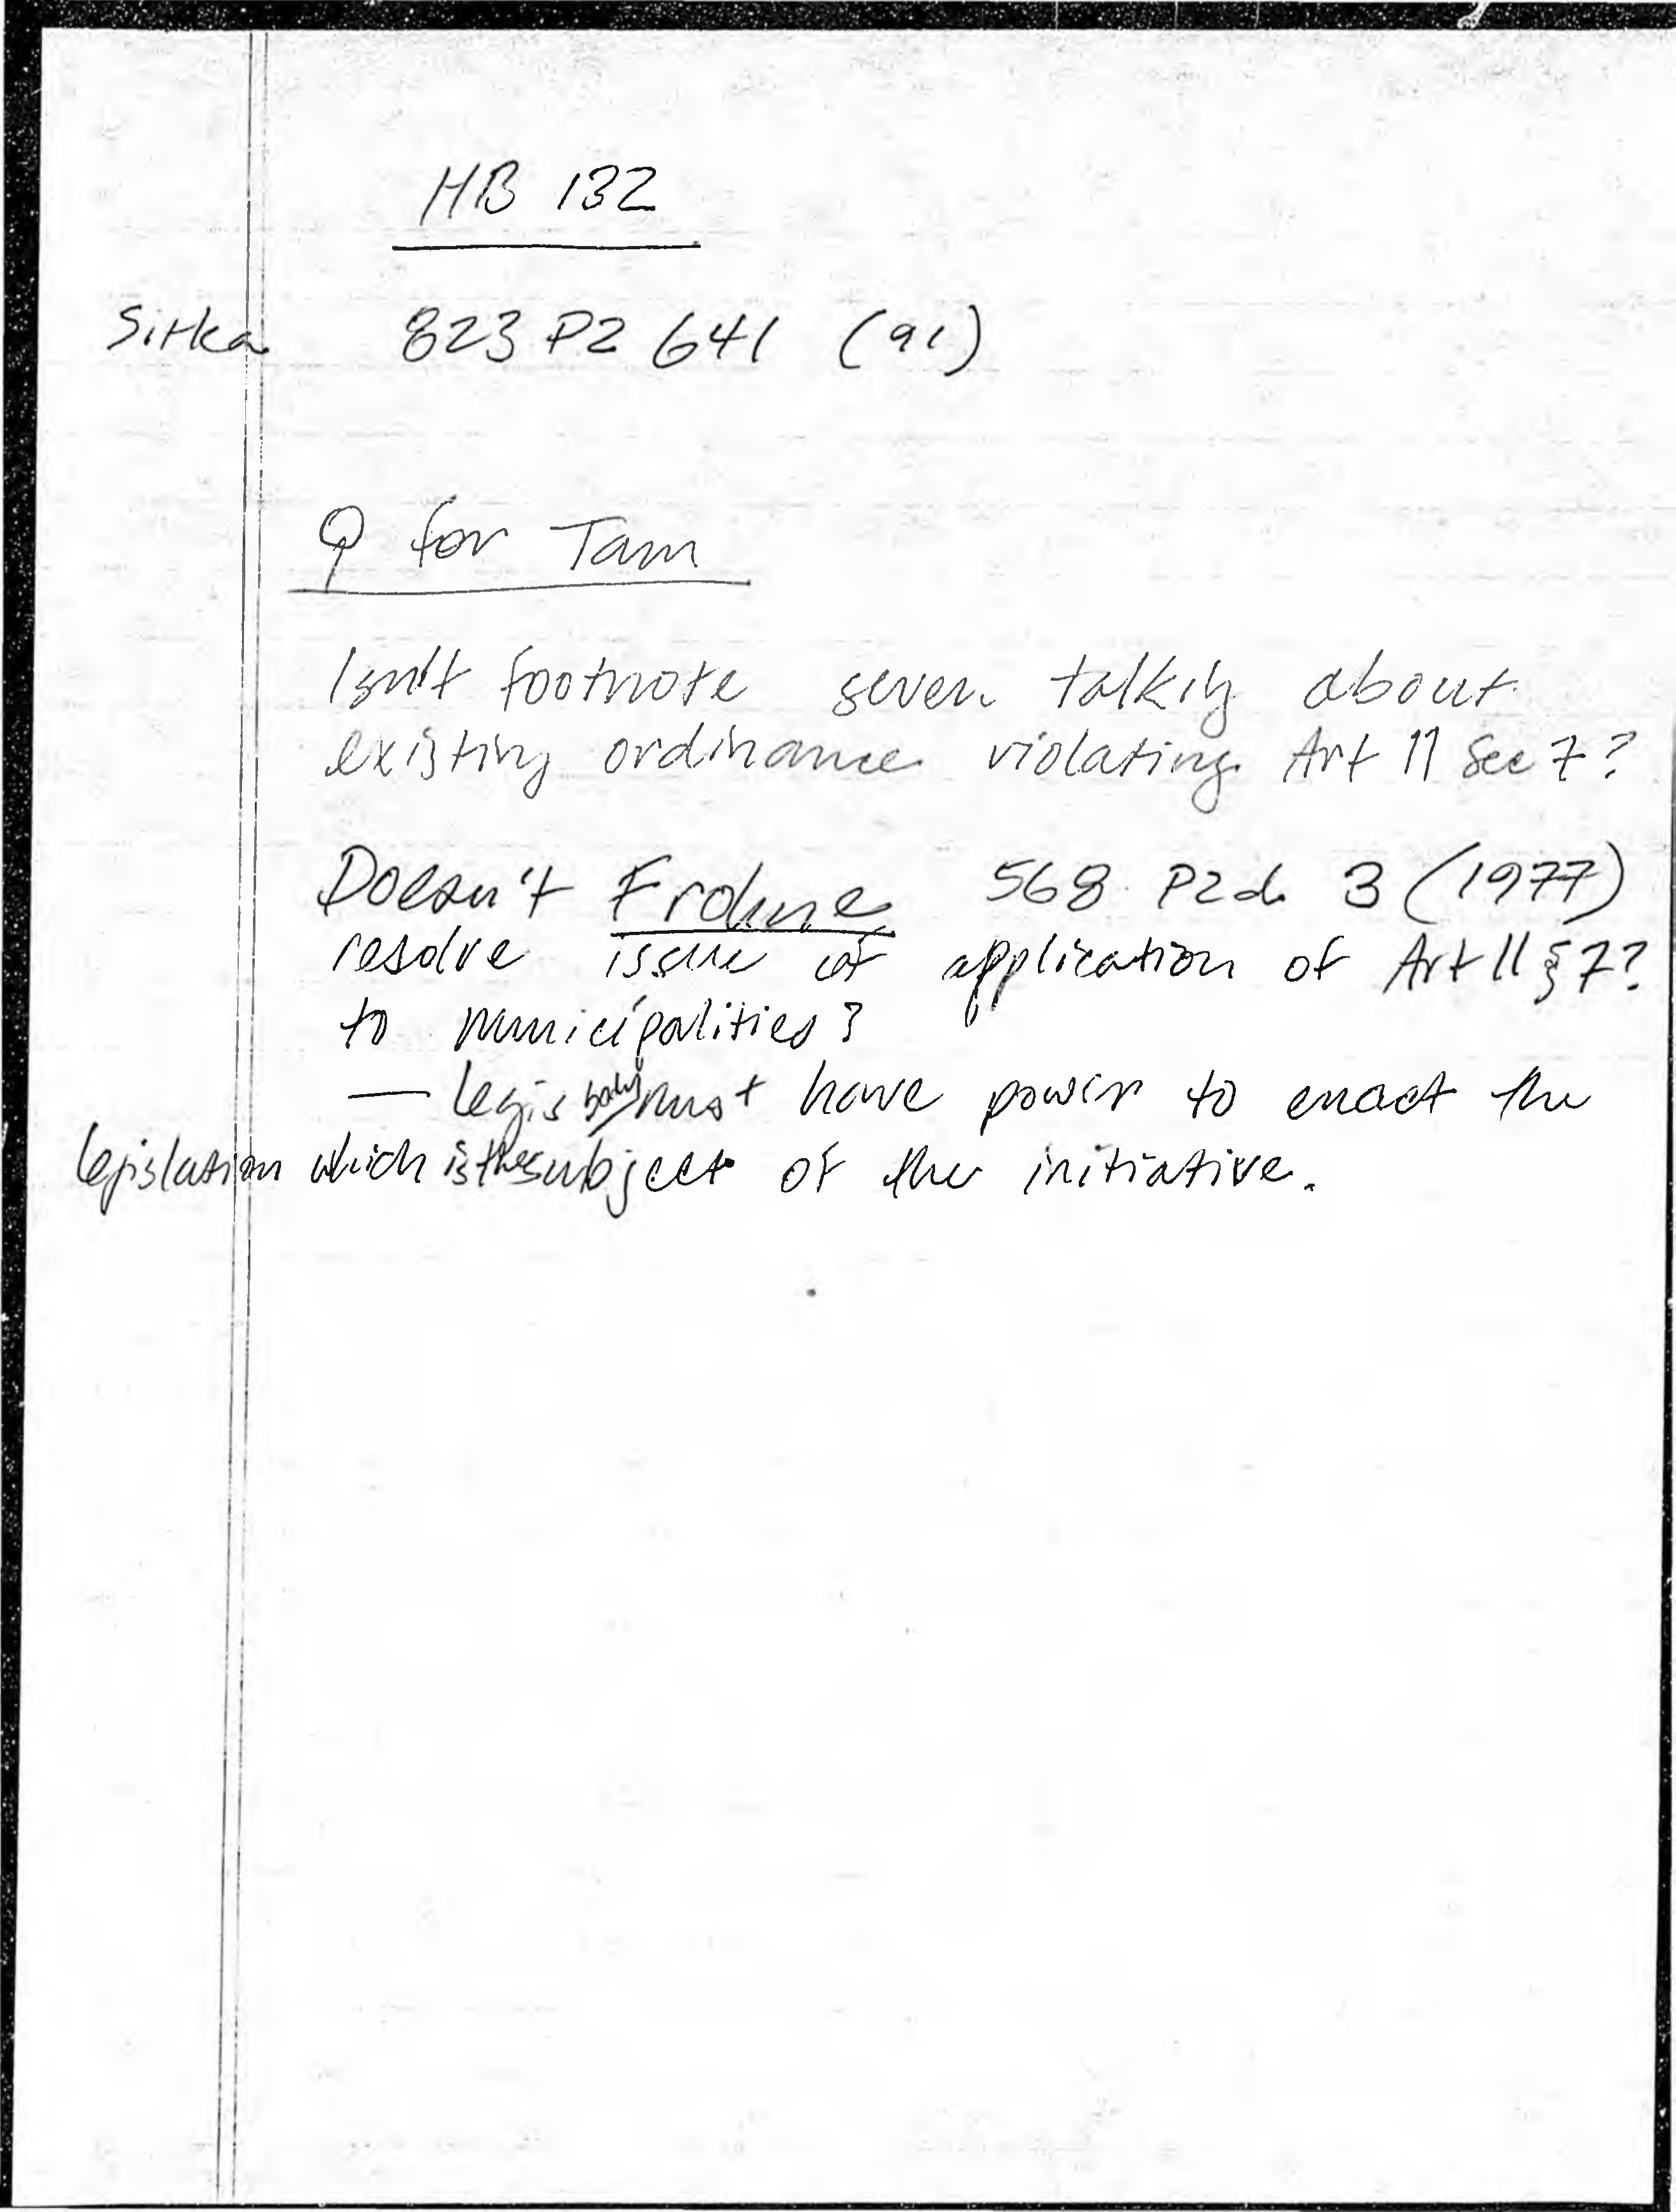 HB 132
Sitka 823 P2 641 (91)
Q for Tam
Isn't footnote seven talking about
existing ordinance violating Art 11 Sec 7?
Doesn't Frohne 568 P2d 3 (1977)
resolve issue of application of Art 11 § 7?
to municipalities?
— legis body must have power to enact the
legislation which is the subject of the initiative.